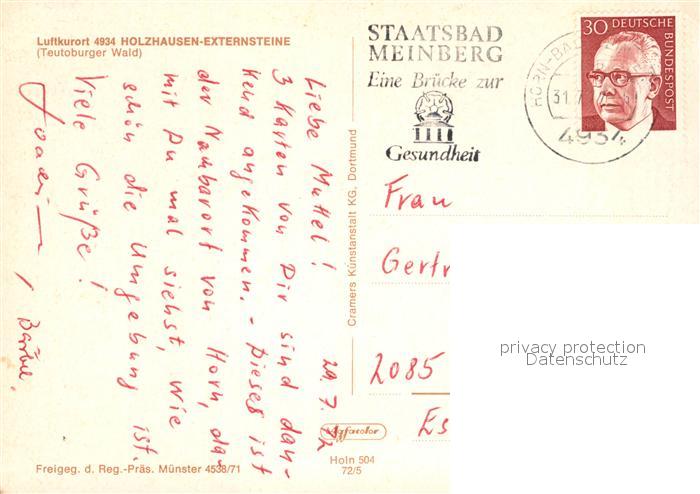 Luftkurort 4934 HOLZHAUSEN-EXTERNSTEINE
(Teutoburger Wald)
STAATSBAD
MEINBERG
Eine Brücke zur
Gesundheit
30 DEUTSCHE
BUNDESPOST
HORN-BAD
31.7
4934
29. 7. 72
Liebe Muttel!
3 Karten von Dir sind dan-
kend angekommen. - Dieses ist
der Nachbarort von Horn, da-
mit Du mal siehst, wie
schön die Umgebung ist.
Viele Grüße!
Joachim
/ Bärbel.
Cramers Kunstanstalt KG. Dortmund
Frau
Gertr
2085
Es
privacy protection
Datenschutz
Agfacolor
Holn 504
72/5
Freigeg. d. Reg.-Präs. Münster 4538/71